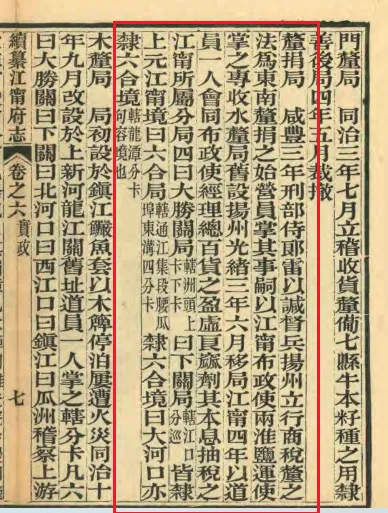 門釐局　同治三年七月立稽收貨釐備七縣牛本籽種之用隸
善後局四年五月裁撤
釐捐局　咸豐三年刑部侍郎雷以諴督兵揚州立行商稅釐之
法爲東南釐捐之始營員掌其事嗣以江甯布政使兩淮鹽運使
掌之專收水釐局舊設揚州光緒三年六月移局江甯四年以道
員一人會同布政使經理總百貨之盈虛覈劑其本息抽稅之
江甯所屬分局四曰大勝關局轄洲頭上卡下卡曰下關局轄江口分巡皆隸
上元江甯境曰六合局轄通江集段腰瓜埠東溝四分卡隸六合境曰大河口亦
隸六合境轄龍潭分卡句容境也
木釐局　局初設於鎮江鱖魚套以木簰停泊屢遭火災同治十
年九月改設於上新河龍江關舊址道員一人掌之轄分卡凡六
曰大勝關曰下關曰北河口曰西江口曰鎮江曰瓜洲稽察上游
續纂江甯府志
卷之六 賣政
七